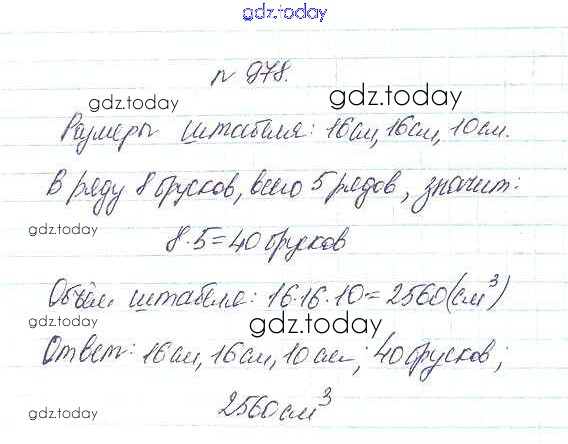 gdz.today
n 978.
gdz.today gdz.today
Размеры штабеля: 16см, 16см, 10см.
В ряду 8 брусков, всего 5 рядов, значит:
gdz.today
8·5=40 брусков
Объём штабеля: 16·16·10=2560(см³)
gdz.today gdz.today
Ответ: 16см, 16см, 10см; 40 брусков;
2560см³
gdz.today